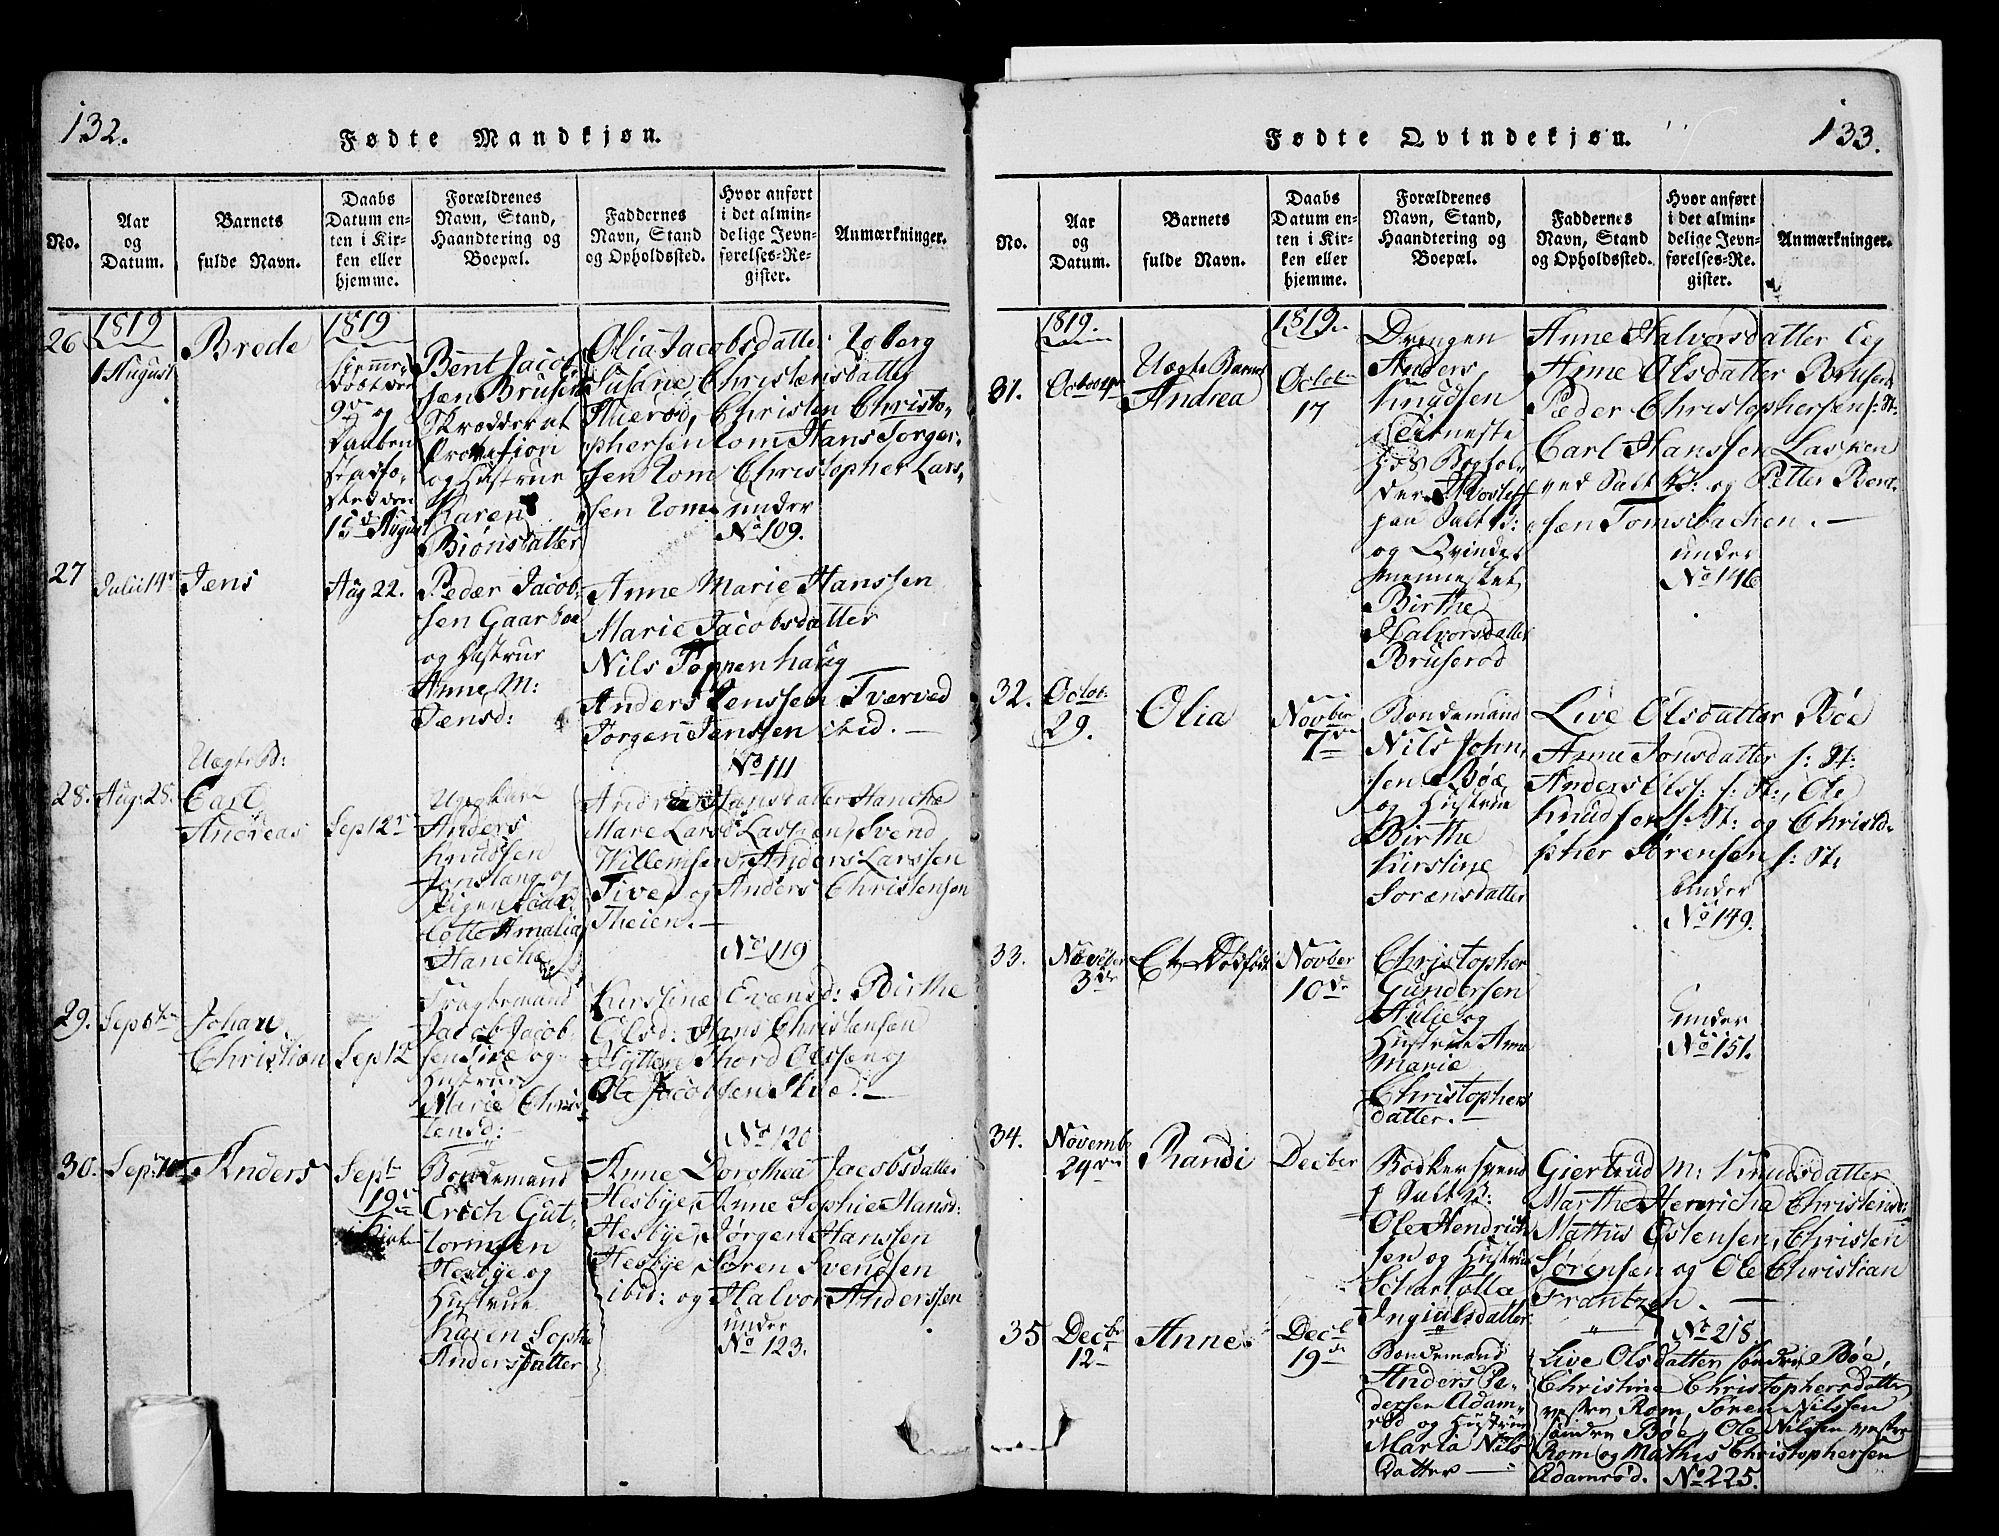 132.
Fødte Mandkjøn.
No.
Aar
og
Datum.
Barnets
fulde Navn.
Daabs
Datum en-
ten i Kir-
ken eller
hjemme.
Forældrenes
Navn, Stand,
Haandtering og
Boepæl.
Faddernes
Navn, Stand
og Opholdssted.
Hvor anført
i det almin-
delige Jevn-
førelses-Re-
gister.
Anmærkninger.
26
1819
1 August
Brede
1819
hjemme-
døbt den
9de og
Daaben
stadfæ-
sted den
15de August
Bent Jacob-
sen Bruserød
Skrædder at
Profession
og Hustrue
Karen
Biörnsdatter
Olia Jacobsdatter Roberg
Susane Christensdatter
Christen Christo-
phersen Rom Hans Torger-
sen Rom Christopher Lars-
sen Rom
under
No 109.
27
Julii 14de
Jens
Aug 22.
Peder Jacob-
sen Gaarboe
og Hustrue
Anne M:
Jensd:
Anne Marie Hanssen
Marie Jacobsdatter
Nils Toppenhaug
Anders Jenssen Tværved
Jørgen Jenssen ibid. —
No 111
28.
Aug: 28.
Uægte B:
Carl
Andreas
Sep 12
Ungkarl
Anders
Knudsen
og
Pigen
Lotte Amalia
Hanche
Andrea Hansdatter Hanche
Mare Lars Lassen, Svend
Willemsen, Anders Larssen
Tived og Anders Christensen
Theien. —
No 119
29.
Sep 6te
Johan
Christian
Sep 12
Jacob Jacob-
sen og
Hustrue
Marie Chris-
tensd:
Kirstine Evensd: Birthe
Olsd: Hans Christensen
Thord Olssen og
Ole Jacobsen
No 120
30.
Sep: 10
Anders
Sept
19de
i Kirken
Bondemand
Erich Gut-
tormsen
Hesbye og
Hustrue
Karen Sophie
Andersdatter
Anne Dorothea Jacobsdatter
Hesbye, Anne Sophie Hansd:
Hesbye, Jørgen Hanssen
Hesbye, Søren Svendsen
ibid: og Halvor Anderssen
under
No 123.
133.
Fødte Qvindekjøn.
No.
Aar
og
Datum.
Barnets
fulde Navn.
Daabs
Datum en-
ten i Kir-
ken eller
hjemme.
Forældrenes
Navn, Stand,
Haandtering og
Boepæl.
Faddernes
Navn, Stand
og Opholdssted.
Hvor anført
i det almin-
delige Jevn-
førelses-Re-
gister.
Anmærkninger.
31.
1819.
Octob 4de
Uægte Barn
Andrea
1819
October
17
Drengen
Anders
Knudsen
tieneste
hos Boghol-
der
paa Salt V:
og Qvinde-
mennesket
Birthe
Halvorsdatter
Bruserød
Anne Halvorsdatter Eeg
Anne Olsdatter Bruserød
Peder Christophersen s: St:
Carl Hanssen Lassen
ved Salt V: og Petter Bent-
sen Tomsbachen. —
under
No 146
32.
Octob:
29.
Olia
Novber
7de
Bondemand
Nils John-
sen Bøe
og Hustrue
Birthe
Kirstine
Sørensdatter
Live Olsdatter Bøe
Anne Jonsdatter s: St:
Anders Olss: s: St:, Ole
Knudsen s: St: og Christo-
pher Sørensen s: St:
under
No 149.
33.
November
3de
Et Dødfødt
Novber
10de
Christopher
Gundersen
Hulie og
Hustrue Anne
Marie
Christophers
datter. —
under
No 151.
34.
Novemb
24de
Randi
Decber
Bødkersvend
p Salt V:
Ole Hendrich-
sen og Hustrue
Scharlotta
Ingialsdatter
Giertrud M: Knudsdatter
Marthe Henricha Christensd:
Mathis Ostensen, Christen
Sørensen og Ole Christian
Frantzen. —
No 218
35
Decbr
12
Anne.
Decb
19de
Bondemand
Anders Pe-
dersen Adam-
rød og Hustrue
Maria Nils
datter —
Live Olsdatter søndre Bøe,
Christine Christophersdatter
vestre Rom, Søren Nilssen
søndre Bøe, Ole Nilssen vestre
Rom og Mathis Christophersen
Adamrød.
No 225.